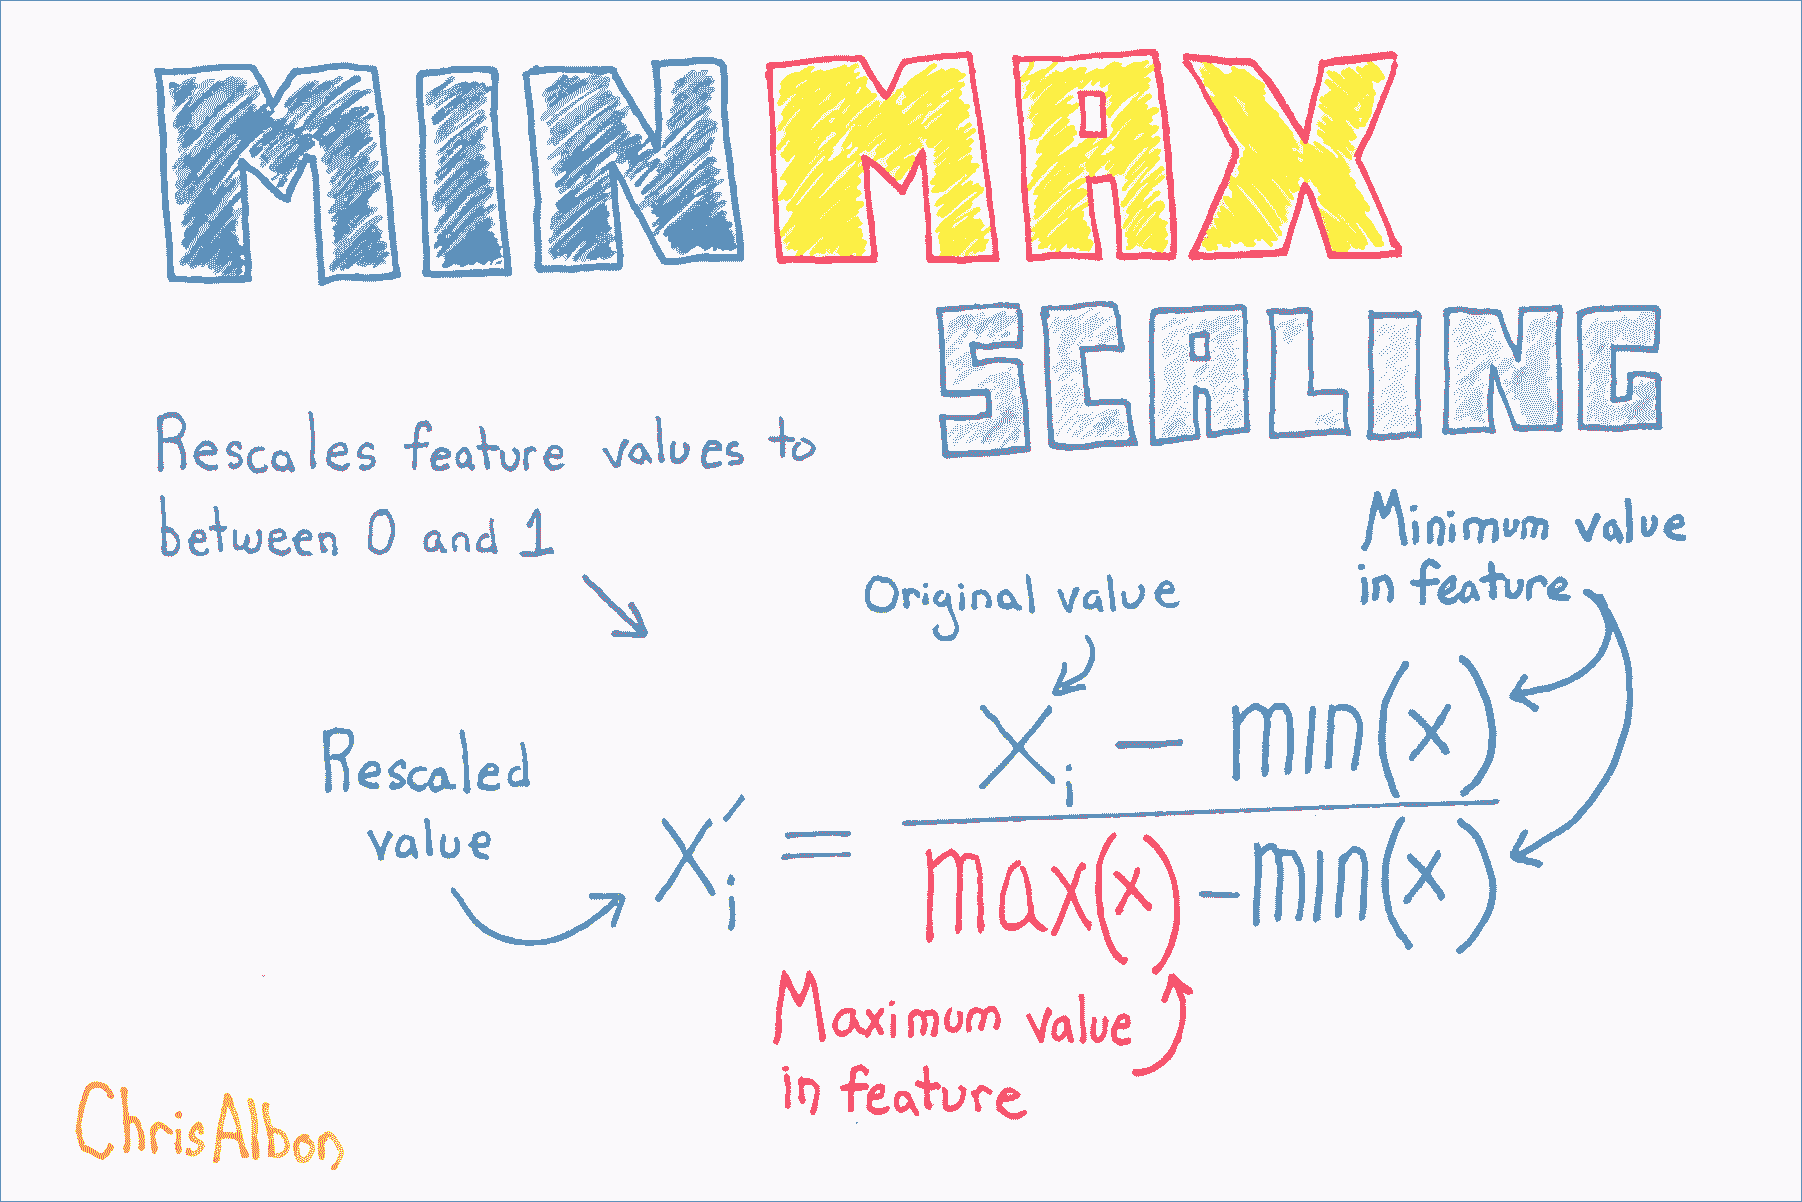 MINMAX
SCALING
Rescales feature values to
between 0 and 1
Minimum value
in feature
Original value
Rescaled
value
Xi' = Xi - min(x)
max(x) - min(x)
Maximum value
in feature
ChrisAlbon